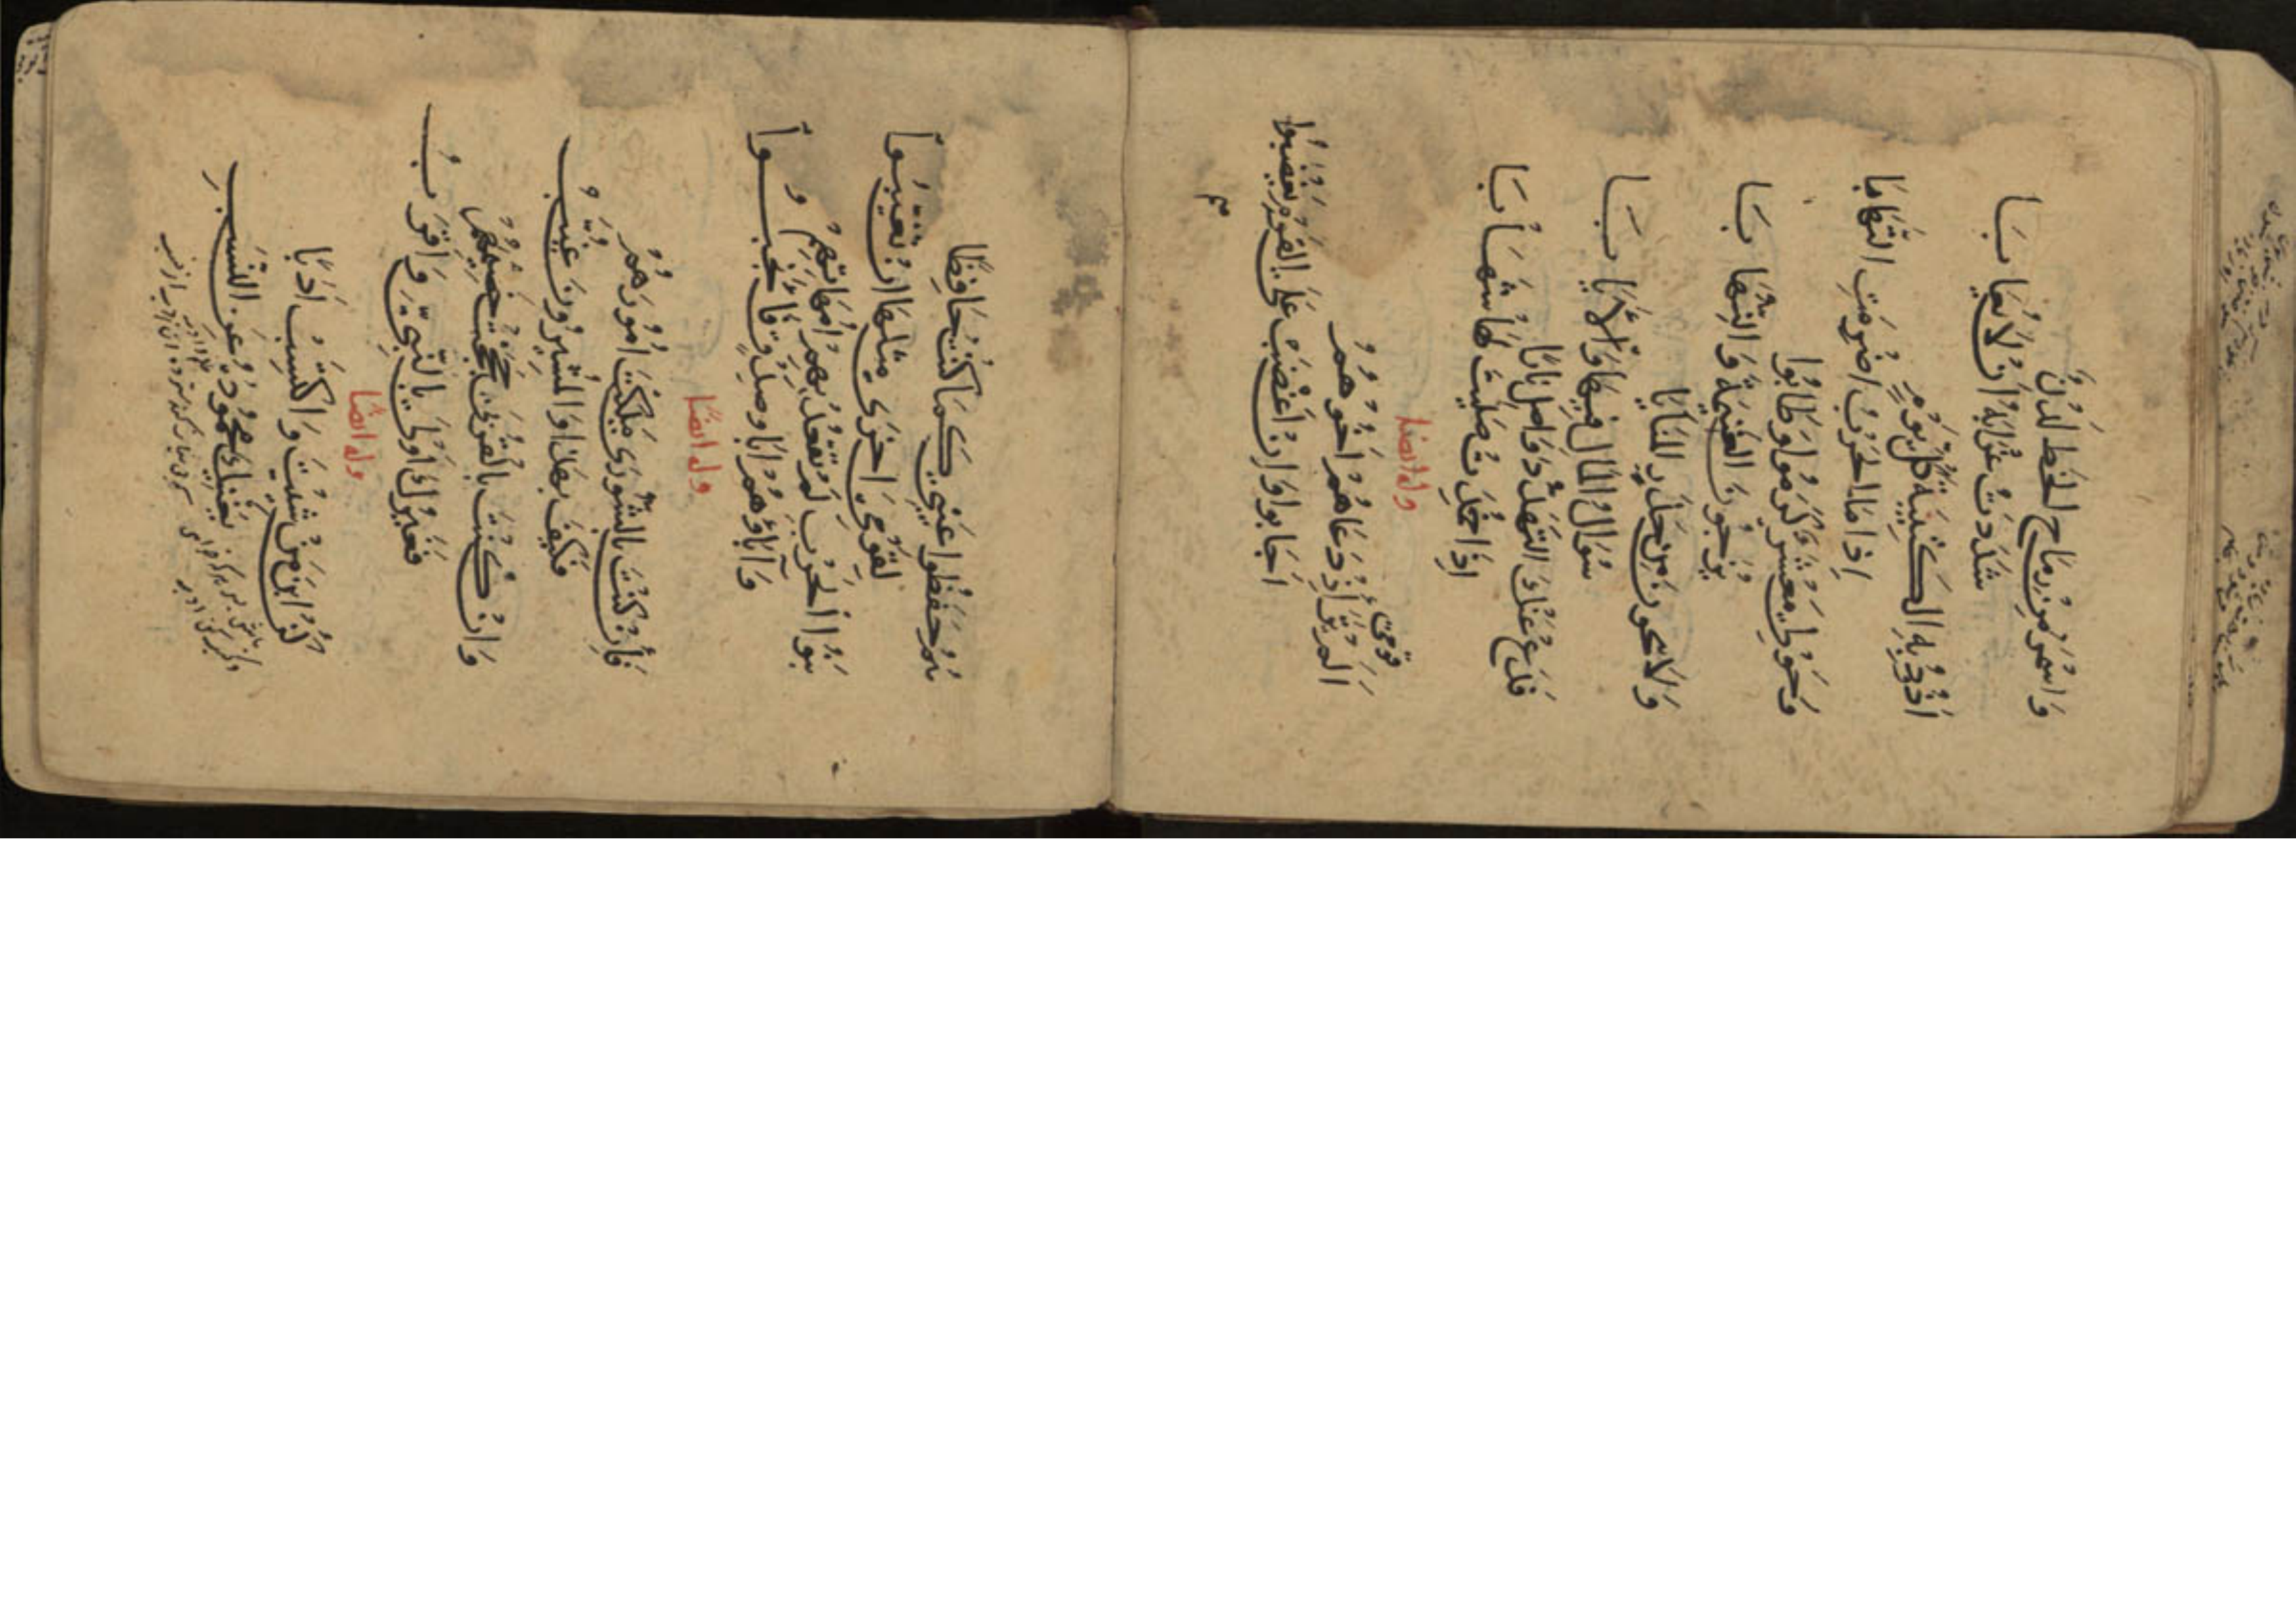 وَاسْمَرَ مِنْ رِمَاحِ الخَطِّ لَدْنٍ
شَدَدْتُ غُرَابَهُ اَنْ لَا يُعَابَا
اَذُودُ بِهِ الكَتِيبَةَ كُلَّ يَوْمٍ
اِذَا مَا الحَرْبُ اضْرِمَتِ التِهَابَا
وَحَوْلِي مَعْشَرٌ كَرُمُوا وَطَابُوا
يُرَجُّونَ الغَنِيمَةَ وَالنِهَابَا
وَلَا ينحُونَ مِنْ حَذَرِ المَنَايَا
سُؤَالَ المَالِ فِيهَا وَالْاِيَابَا
فَدَعْ عَنْكَ التَهَدُّدَ وَاصْلَ نَارًا
اِذَا خَمَدَتْ صَلِيتَ لَهَا شِهَابَا
وله ايضا
اَلَمْ تَرَ قومي اِذْ دَعَاهُمْ اَخُوهُمُ
اَجَابُوا وَاِنْ اَغْضَبْ عَلَى القَوْمِ يَغْضَبُوا
هُمُ حَفِظُوا غَيْبِي كَمَا كُنْتُ حَافِظًا
لِقَوْمِيَ اخْرَى مِثْلَهَا اِنْ تَغَيَّبُوا
بَنُو الحَرْبِ لَمْ تَقْعُدْ بِهِمْ اُمَّهَاتُهُمْ
وَآبَاؤُهُمْ اَبَاءُ صِدْقٍ فَانْجَبُوا
وله ايضًا
فَاِنْ كُنْتَ بِالشُّورَى مَلَكْتَ اُمُورَهُمْ
فَكَيْفَ بِهَذَا وَالمُشِيرُونَ غُيَّبُ
وَاِنْ كُنْتَ بِالقُرْبَى حَجَجْتَ خَصِيمَهُمْ
فَغَيْرُكَ اَوْلَى بِالنَّبِيِّ وَاَقْرَبُ
وله ايضًا
كُنْ ابْنَ مَنْ شِئْتَ وَاكْتَسِبْ اَدَبًا
يُغْنِيكَ مَحْمُودُهُ عَنِ النَّسَبِ